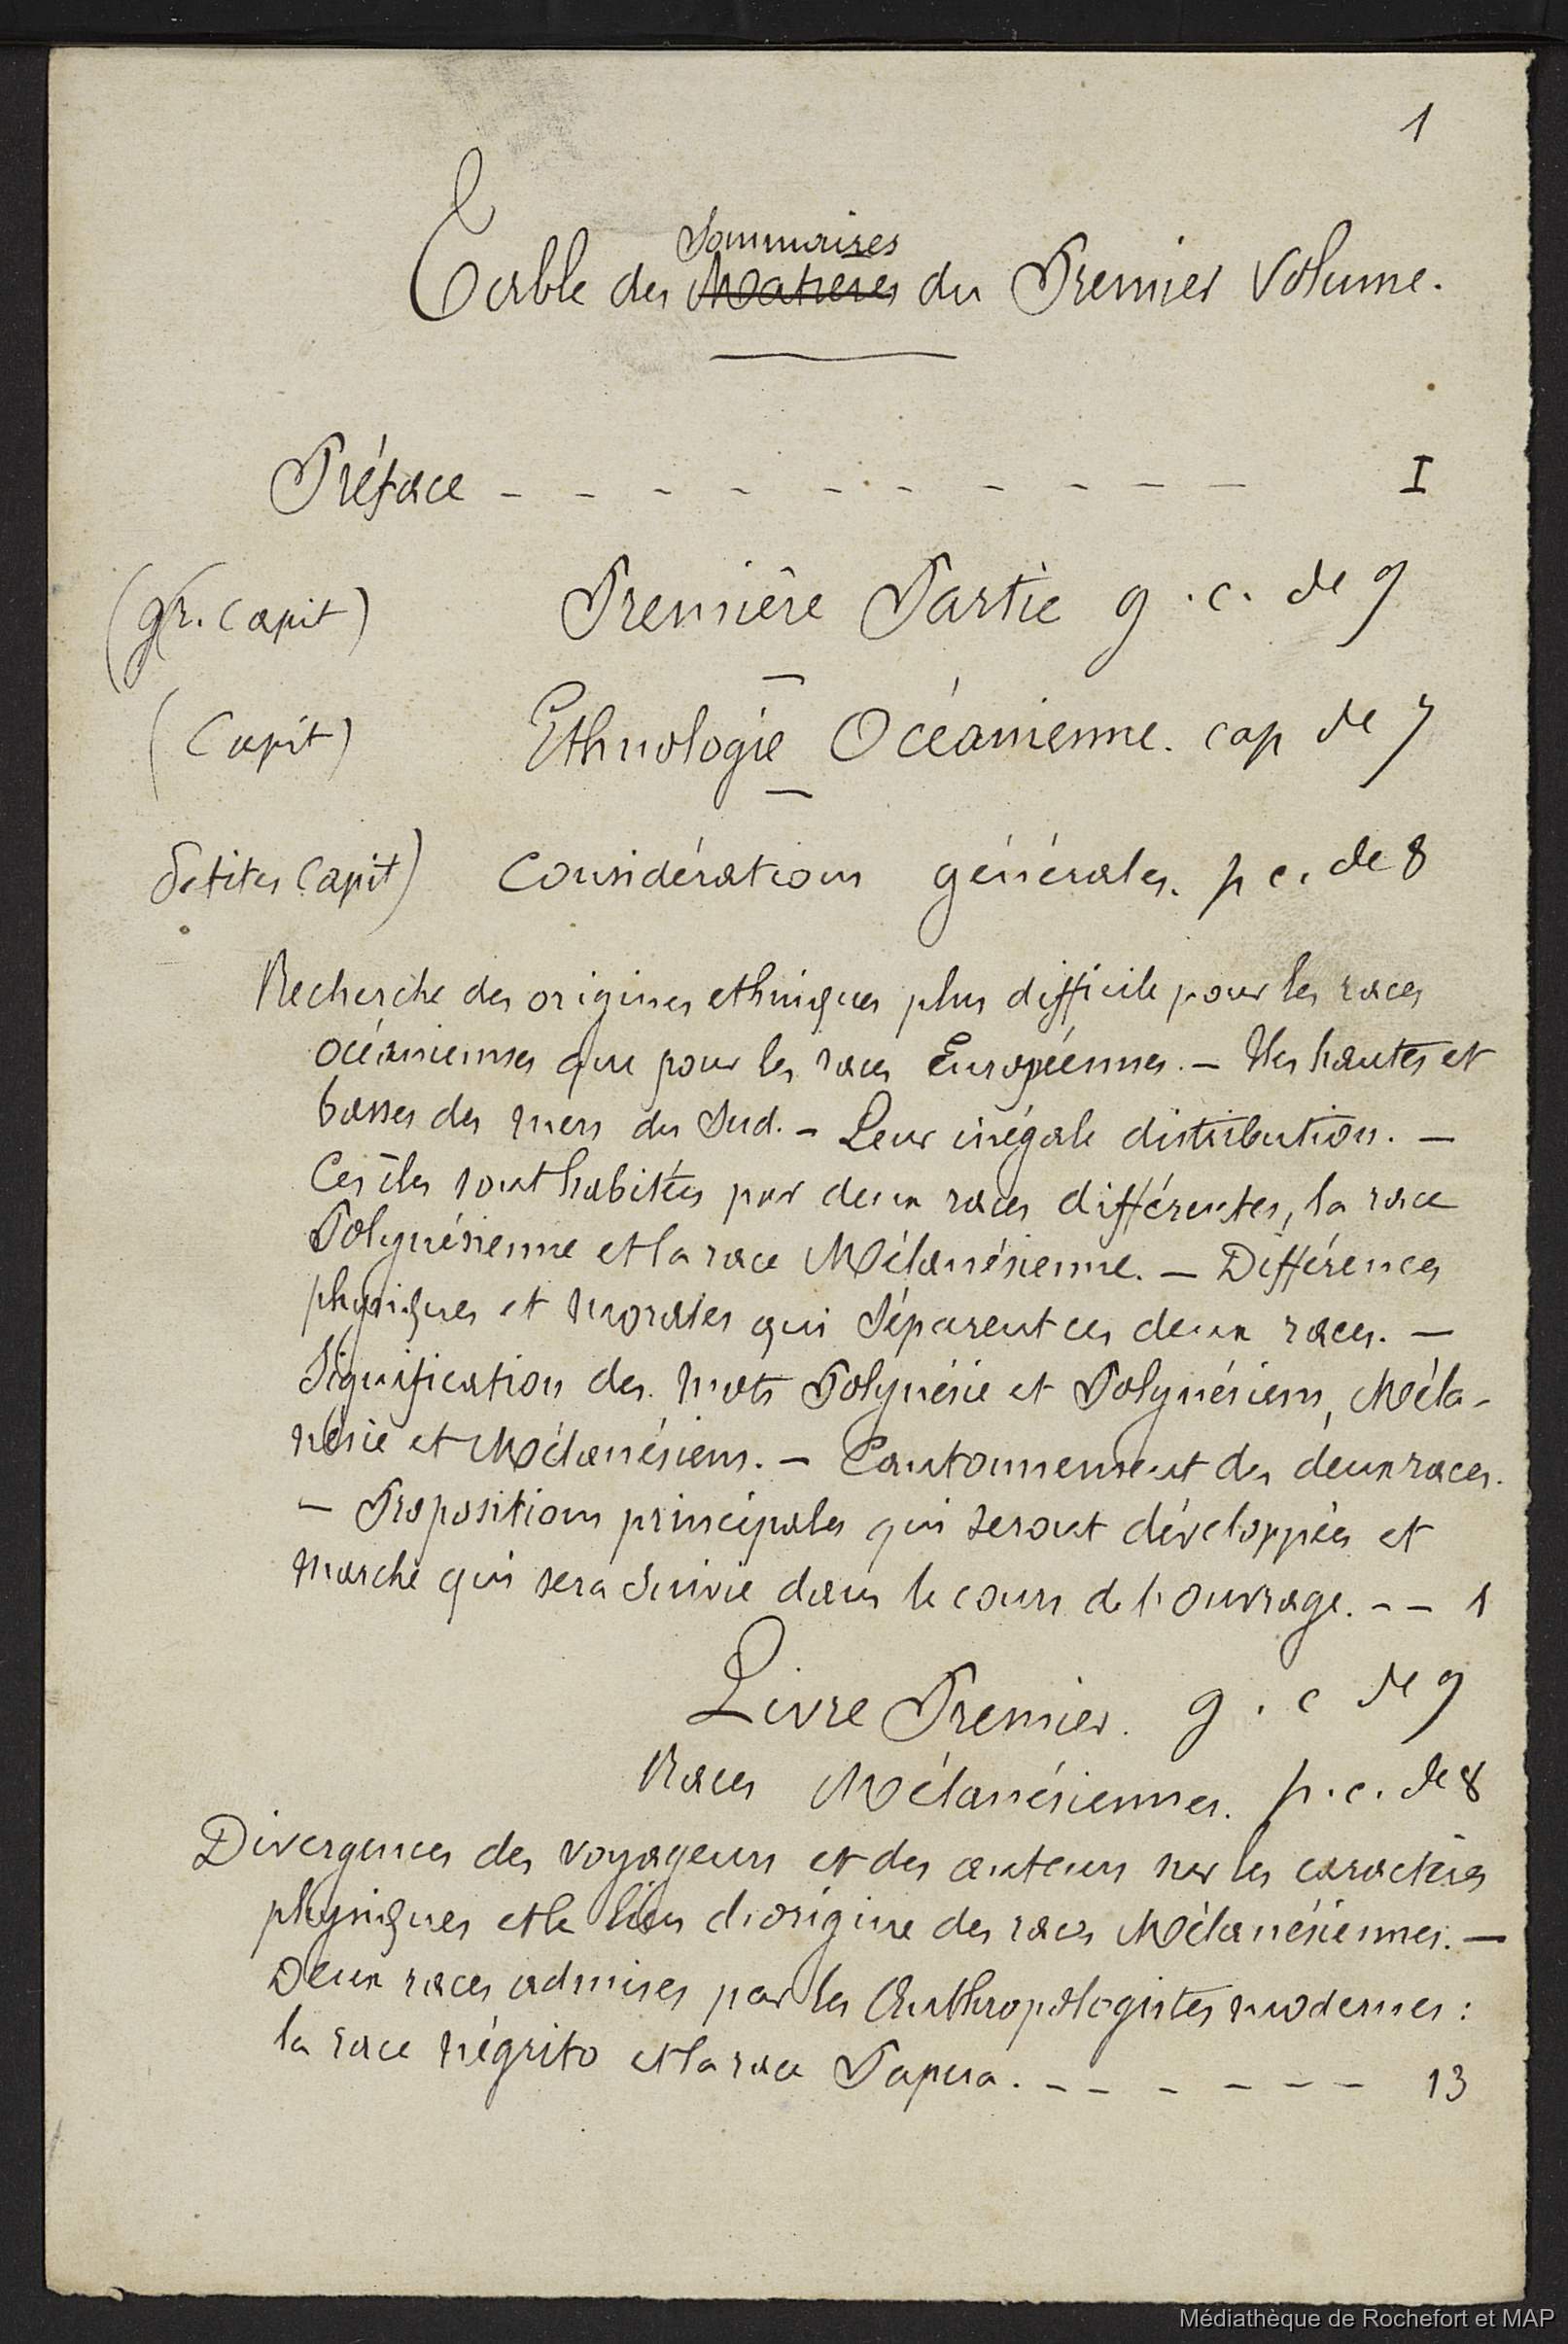 1
Sommaires
Table des Matières du Premier Volume.
Préface - - - - - - - - - - I
(gr. Capit) Première Partie g. c. de 9
(Capit) Ethnologie Océanienne. cap de 7
Petites Capit) Considérations générales. p c. de 8
Recherche des origines ethniques plus difficile pour les races
océaniennes que pour les races Européennes. — Iles hautes et
basses des mers du Sud. — Leur inégale distribution. —
Ces îles sont habitées par deux races différentes, la race
Polynésienne et la race Mélanésienne. — Différences
physiques et morales qui séparent ces deux races. —
Signification des mots Polynésie et Polynésiens, Méla-
nésie et Mélanésiens. — Cantonnement des deux races.
— Propositions principales qui seront développées et
marche qui sera suivie dans le cours de l'ouvrage. - - 1
Livre Premier. g. c de 9
Races Mélanésiennes. p. c. de 8
Divergences des voyageurs et des auteurs sur les caractères
physiques et le lieu d'origine des races Mélanésiennes. —
Deux races admises par les Anthropologistes modernes :
la race négrito et la race Papua. - - - - - - 13
Médiathèque de Rochefort et MAP